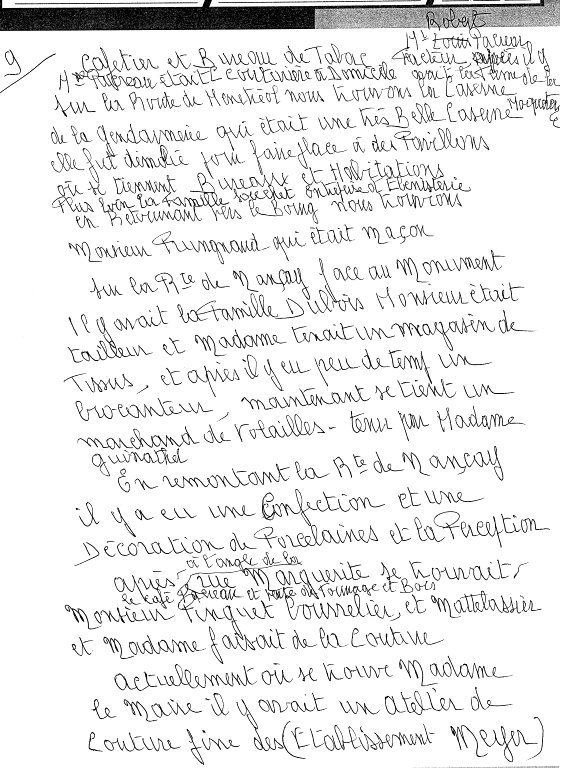 Robert
9
Cafetier et Bureau de Tabac
Mr Louis Pacreau
Facteur après il y
Mme Pacreau était Couturière à Domicile avait la ferme de
Sur la Route de Menetréol nous trouvons la Caserne
de la Gendarmerie qui était une très Belle Caserne
elle fut démolie pour faire place à des Pavillons
où se tiennent Bureaux et Habitations
Plus loin la Famille Souchet entreprise d'Ebénisterie
en Retournant vers le Bourg nous trouvons
Monsieur Rungnaud qui était maçon
sur la Rte de Nançay face au Monument
Il y avait la Famille Dubois Monsieur était
tailleur et Madame tenait un magasin de
Tissus, et après il y eu peu de temp un
brocanteur, maintenant se tient un
marchand de Volailles - tenu par Madame
Guinathel
En remontant la Rte de Nançay
il y a eu une Confection et une
Décoration de Porcelaines et la Perception
à l'angle de la
après, rue Marguerite se trouvait
le Café Pacreau et vente de Fourrage et Bois
Monsieur Pinguet bourrelier, et Mattelassier
et Madame faisait de la Couture
actuellement où se trouve Madame
le Maire il y avait un atelier de
Couture fine des (Etablissement Meyer)